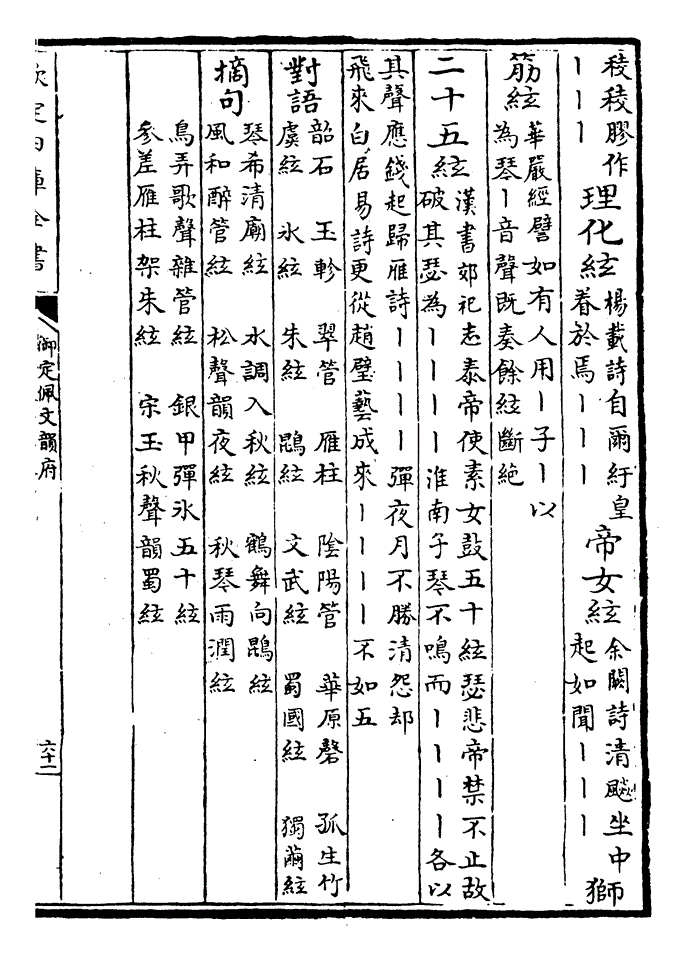 稜稜膠作
丨丨丨
理化絃
楊載詩自爾紆皇
眷於焉丨丨丨
帝女絃
余闕詩清飈坐中
起如聞丨丨丨
獅
筋絃
華嚴經譬如有人用丨子丨以
為琴丨音聲既奏餘絃斷絶
二十五絃
漢書郊祀志泰帝使素女鼓五十絃瑟悲帝禁不止故
破其瑟為丨丨丨丨淮南子琴不鳴而丨丨丨丨各以
其聲應錢起歸雁詩丨丨丨丨彈夜月不勝清怨却
飛來白居易詩更從趙璧藝成來丨丨丨丨不如五
對語
韶石 玉軫 翠管 雁柱 陰陽管 華原磬 孤生竹
虞絃 氷絃 朱絃 鵾絃 文武絃 蜀國絃 獨繭絃
摘句
琴希清廟絃 水調入秋絃 鶴舞向鵾絃
風和醉管絃 松聲韻夜絃 秋琴雨潤絃
鳥弄歌聲雜管絃 銀甲彈氷五十絃
參差雁柱架朱絃 宋玉秋聲韻蜀絃
欽定四庫全書
御定佩文韻府
六十一